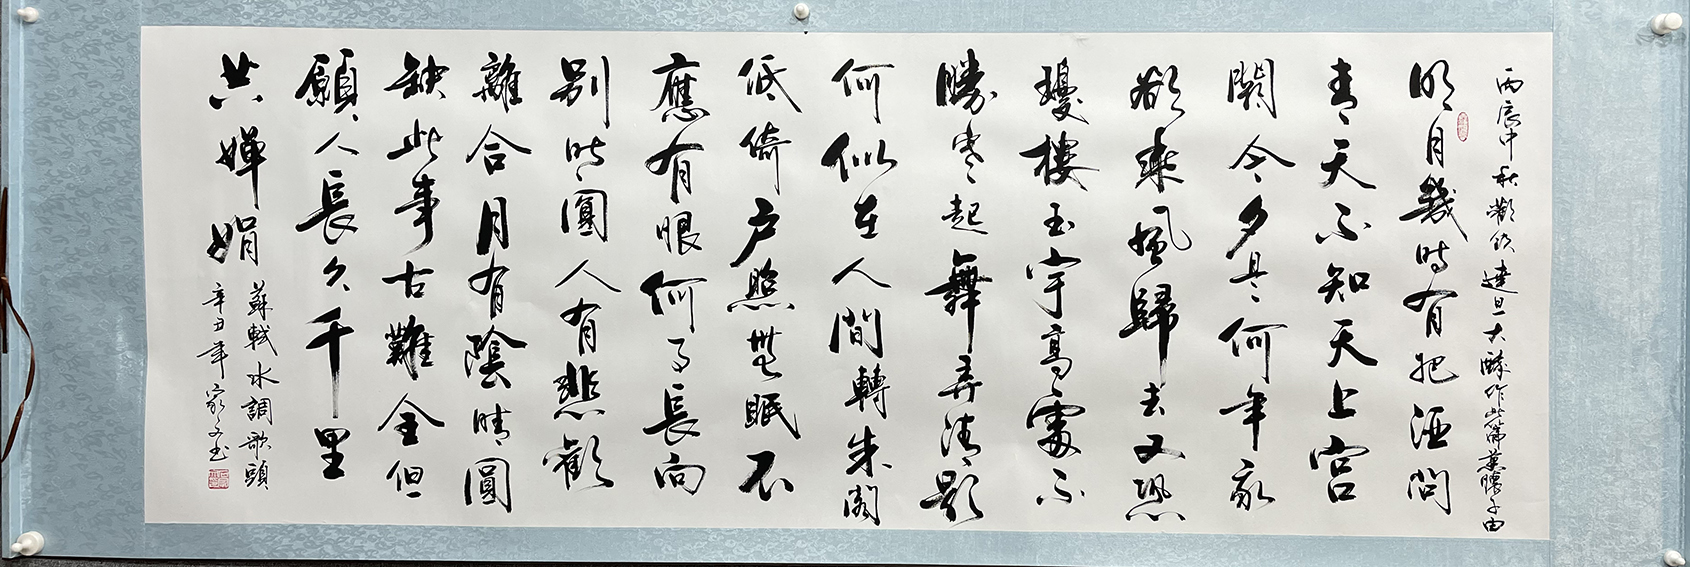 丙辰中秋歡飲達旦大醉作此篇兼懷子由
明月幾時有把酒問
青天不知天上宮
闕今夕是何年我
欲乘風歸去又恐
瓊樓玉宇高處不
勝寒起舞弄清影
何似在人間轉朱閣
低綺戶照無眠不
應有眼何事長向
別時圓人有悲歡
離合月有陰晴圓
缺此事古難全但
願人長久千里
共嬋娟
蘇軾水調歌頭
辛丑年